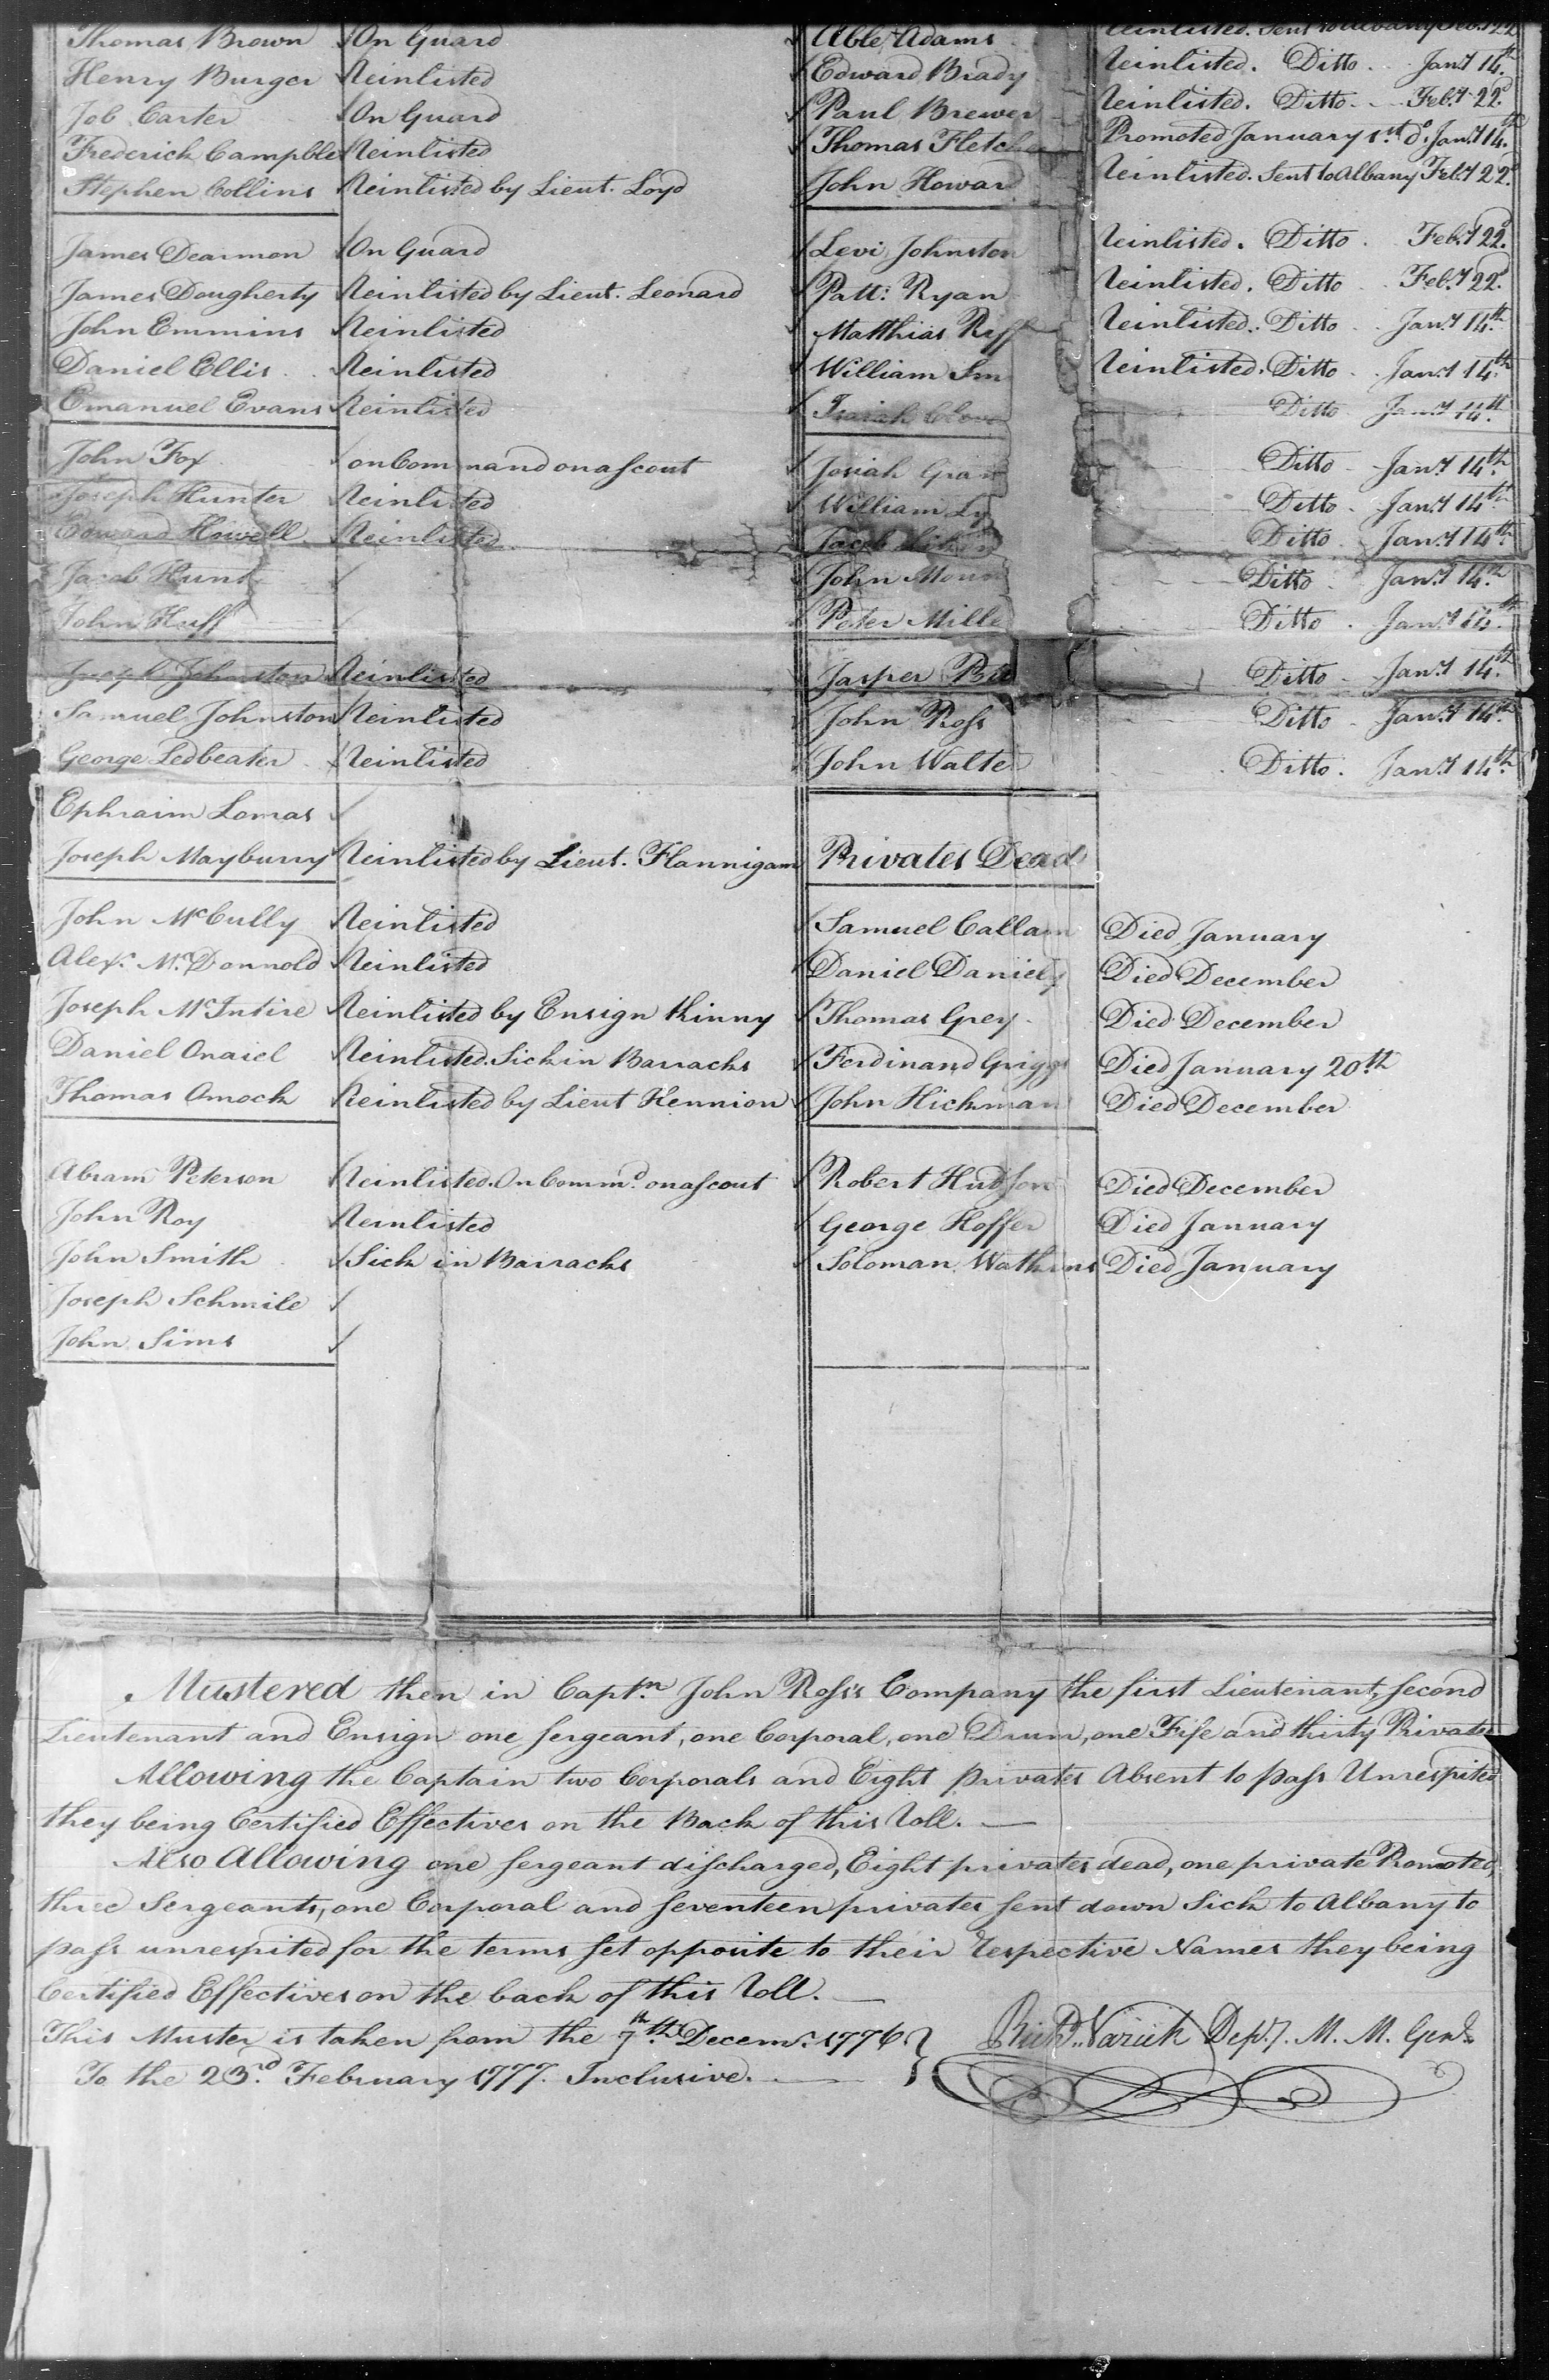 Thomas Brown On Guard
Henry Burger Reinlisted
Job Carter On Guard
Frederick Campble Reinlisted
Stephen Collins Reinlisted by Lieut. Loyd
James Dearmon On Guard
James Dougherty Reinlisted by Lieut. Leonard
John Emmins Reinlisted
Daniel Ellis Reinlisted
Emanuel Evans Reinlisted
John Fox on Command on a Scout
Joseph Hunter Reinlisted
Edward Howell Reinlisted
Jacob Hunt
John Huff
Joseph Johnston Reinlisted
Samuel Johnston Reinlisted
George Ledbeater Reinlisted
Ephraim Lomas
Joseph Mayburry Reinlisted by Lieut. Flannigam
John McCully Reinlisted
Alexr. McDonnold Reinlisted
Joseph McIntire Reinlisted by Ensign Kinny
Daniel Onaiel Reinlisted. Sick in Barracks
Thomas Omock Reinlisted by Lieut Kennion
Abram Peterson Reinlisted. On Commd. on a Scout
John Roy Reinlisted
John Smith Sick in Barracks
Joseph Schmile
John Sims
Able Adams Reinlisted. Sent to Albany Feb. 22
Edward Brady Reinlisted. Ditto Jany 14th
Paul Brewer Reinlisted. Ditto Feby 22d
Thomas Fletche Promoted January 1st do. Jany 14th
John Howard Reinlisted. Sent to Albany Feby 22d
Levi Johnston Reinlisted. Ditto Feby 22d
Patt: Ryan Reinlisted. Ditto Feby 22d
Matthias Riff Reinlisted. Ditto Jany 14th
William Sm Reinlisted. Ditto Jany 14th
Isaiah Ditto Jany 14th
Josiah Gran Ditto Jany 14th
William Ly Ditto Jany 14th
Jacob Ditto Jany 14th
John Moun Ditto Jany 14th
Peter Mille Ditto Jany 14th
Jasper Ditto Jany 14th
John Ross Ditto Jany 14th
John Walte Ditto Jany 14th
Privates Dead
Samuel Callam Died January
Daniel Daniely Died December
Thomas Grey Died December
Ferdinand Griggs Died January 20th
John Hickman Died December
Robert Hudson Died December
George Hoffer Died January
Soloman Watkins Died January
Mustered then in Captn. John Ross's Company the first Lieutenant, Second
Lieutenant and Ensign one Sergeant, one Corporal, one Drum, one Fife and thirty Privates
Allowing the Captain two Corporals and Eight privates Absent to pass Unrespited
they being Certified Effectives on the Back of this Roll.
Also Allowing one Sergeant discharged, Eight privates dead, one private Promoted,
three Sergeants, one Corporal and Seventeen privates sent down Sick to Albany to
pass unrespited for the terms set opposite to their respective Names they being
Certified Effectives on the back of this Roll.
This Muster is taken from the 7th Decemr. 1776.
To the 23rd February 1777. Inclusive.
Richd. Varick Depy. M. M. Genl.